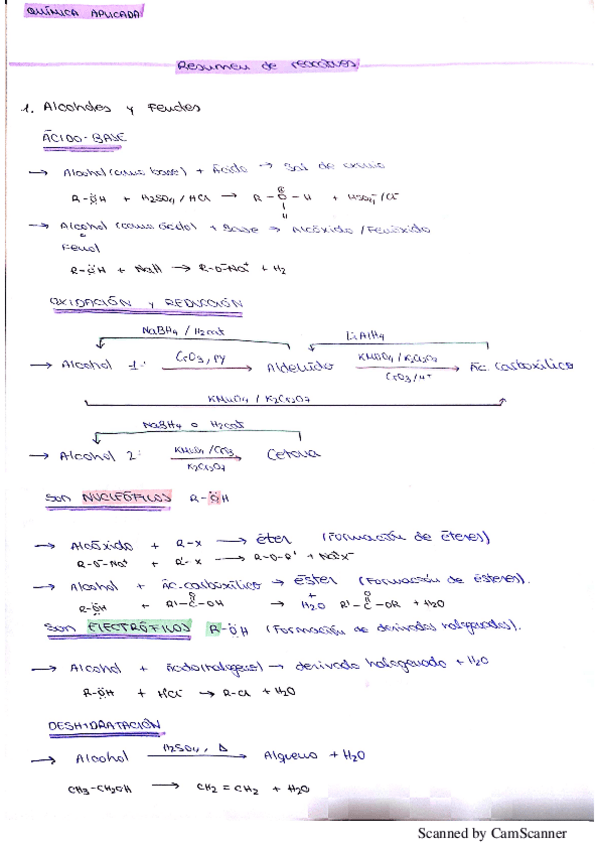 QUÍMICA APLICADA
Resumen de reacciones
1. Alcoholes y Fenoles
ÁCIDO-BASE
→ Alcohol (como base) + Ácido → Sal de oxonio
R-ÖH + H2SO4 / HCl → R-O⊕-H + HSO4⁻/Cl⁻
H
→ Alcohol (como ácido) + Base → Alcóxido / Fenóxido
Fenol
R-ÖH + NaH → R-O⁻Na⁺ + H2
OXIDACIÓN y REDUCCIÓN
NaBH4 / H2cat LiAlH4
→ Alcohol 1: CrO3, py Aldehído KMnO4 / K2Cr2O7 Ác. carboxílico
CrO3/H⁺
KMnO4 / K2Cr2O7
NaBH4 o H2cat
→ Alcohol 2: KMnO4 / CrO3 Cetona
K2Cr2O7
Son NUCLEÓFILOS R-ÖH
→ Alcóxido + R-X → éter (Formación de éteres)
R-O⁻Na⁺ + R'-X → R-O-R' + Na⁺X⁻
→ Alcohol + Ác. carboxílico → éster (Formación de ésteres).
R-ÖH + R'-C-OH → H2O R'-C-OR + H2O
Son ELECTRÓFILOS R-ÖH (Formación de derivados halogenados).
→ Alcohol + ácido (halógeno) → derivado halogenado + H2O
R-ÖH + HCl → R-Cl + H2O
DESHIDRATACIÓN
→ Alcohol H2SO4, Δ → Alqueno + H2O
CH3-CH2OH → CH2=CH2 + H2O
Scanned by CamScanner